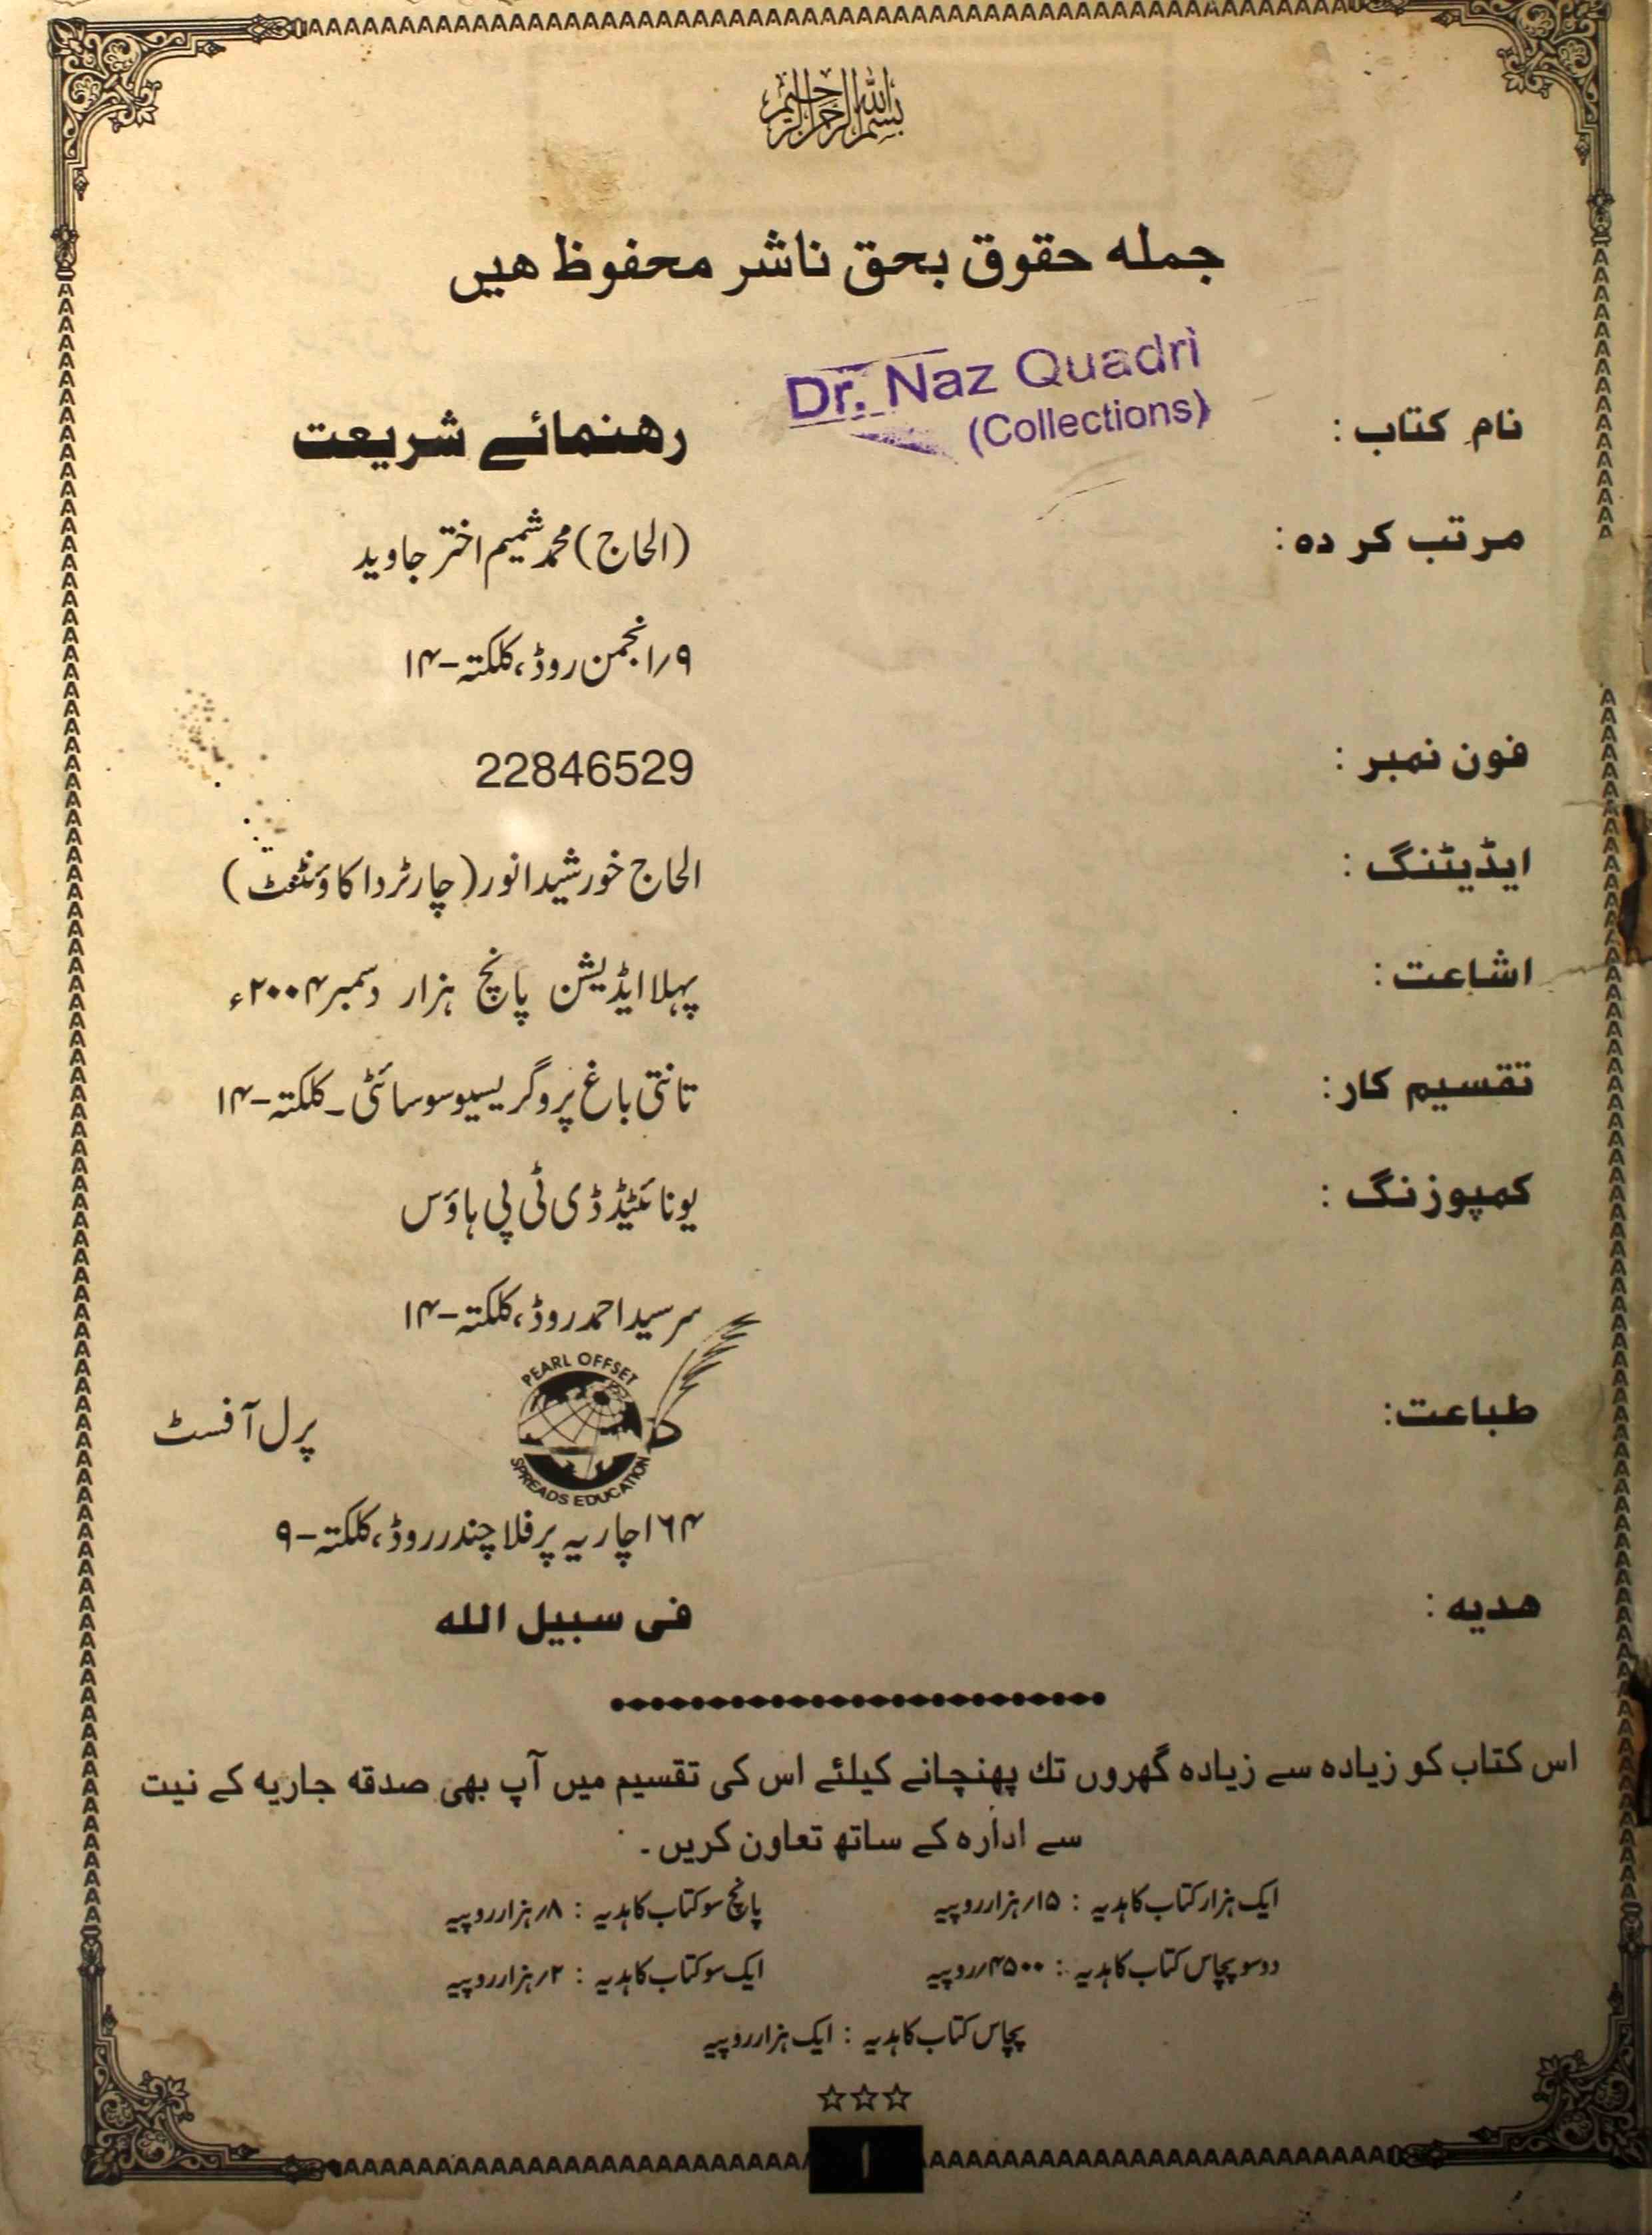 بسم الله الرحمن الرحيم
جمله حقوق بحق ناشر محفوظ هیں
Dr. Naz Quadri
(Collections)
نام کتاب : رهنمائے شریعت
مرتب کر ده : (الحاج) محمد شمیم اختر جاوید
۹/انجمن روڈ، کلکتہ-۱۴
فون نمبر : 22846529
ایڈیٹنگ : الحاج خورشید انور (چارٹرداکاؤنٹنٹ)
اشاعت : پہلا ایڈیشن پانچ ہزار دسمبر ۲۰۰۴ء
تقسیم کار : تانتی باغ پروگریسیو سوسائٹی۔ کلکتہ-۱۴
کمپوزنگ : یونائیٹیڈ ڈی ٹی پی ہاؤس
سرسید احمد روڈ، کلکتہ-۱۴
طباعت : پرل آفسٹ
PEARL OFFSET
SPREADS EDUCATION
۱۶۴ اچاریہ پرفلا چندر روڈ، کلکتہ-۹
هدیه : فی سبیل الله
اس کتاب کو زیادہ سے زیادہ گھروں تك پهنچانے کیلئے اس کی تقسیم میں آپ بھی صدقه جاریه کے نیت
سے ادارہ کے ساتھ تعاون کریں۔
ایک ہزار کتاب کا ہدیہ : ۱۵/ہزار روپیہ پانچ سو کتاب کا ہدیہ : ۸/ہزار روپیہ
دوسو پچاس کتاب کا ہدیہ : ۴۵۰۰/روپیہ ایک سو کتاب کا ہدیہ : ۲/ہزار روپیہ
پچاس کتاب کا ہدیہ : ایک ہزار روپیہ
☆☆☆
۱